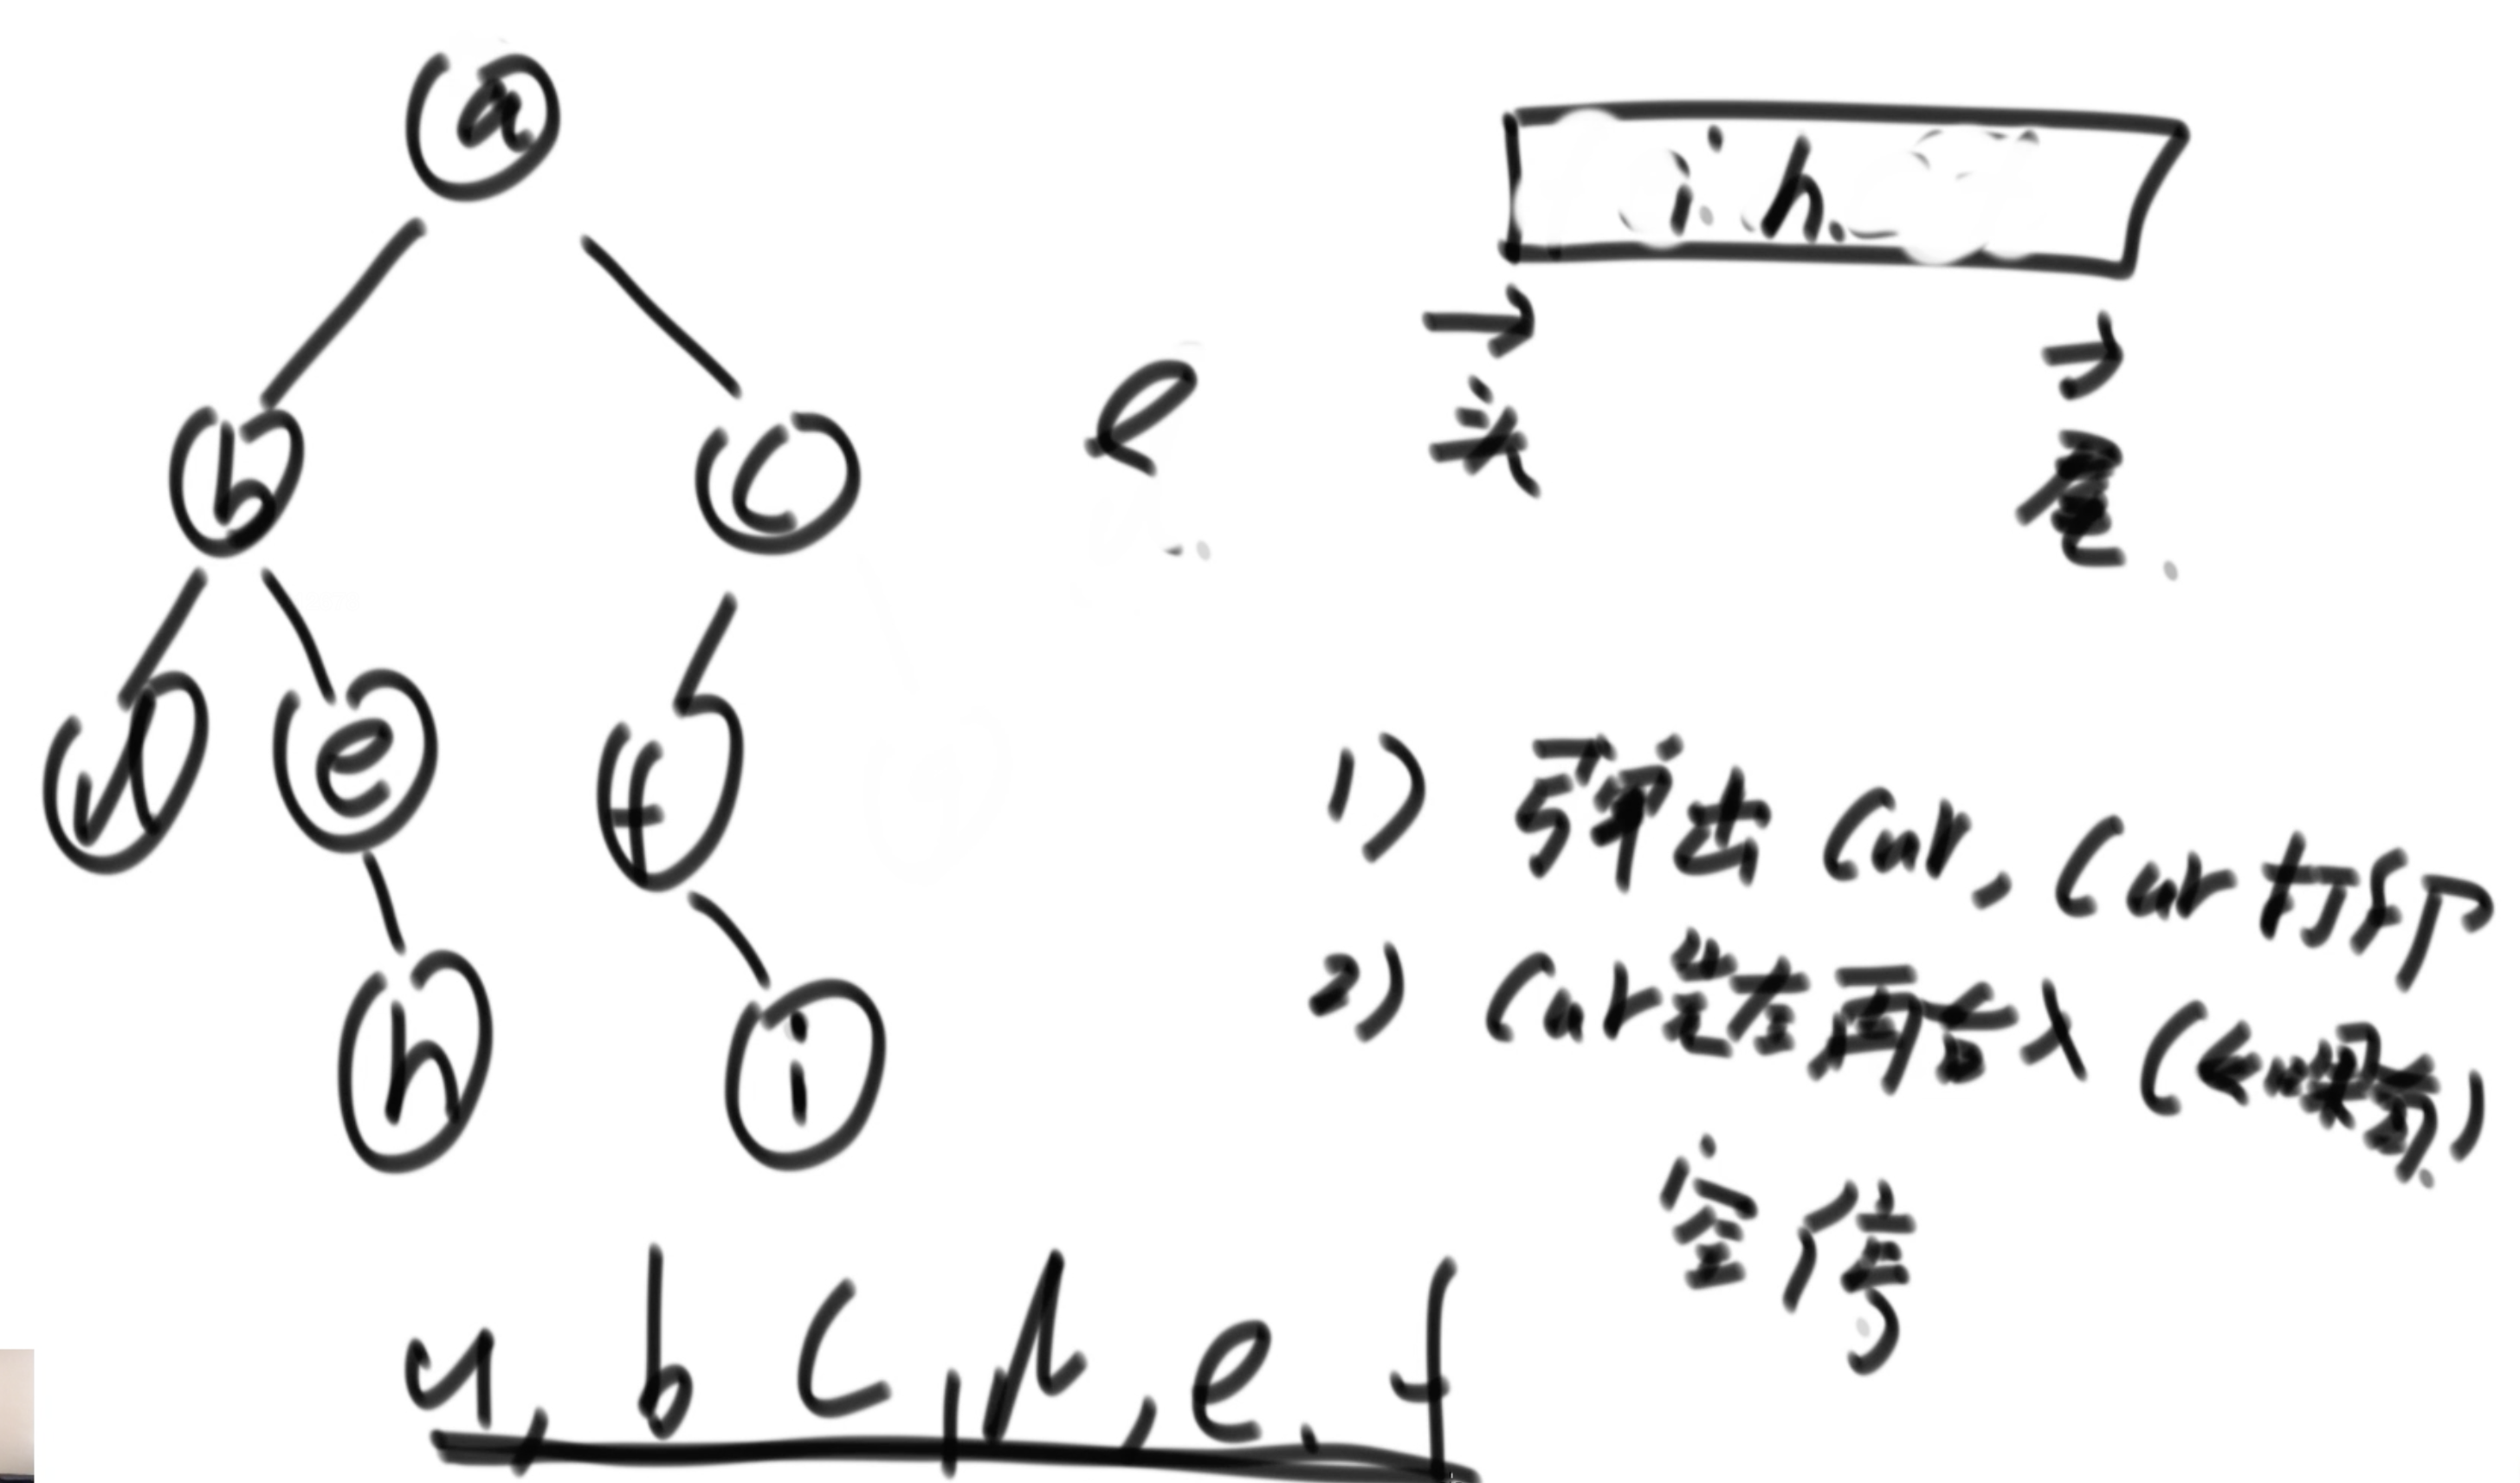 a
i. h.
b
c
e
头
尾
d
e
f
1) 弹出 cur, cur打印
2) cur 先左再右入 (如果有)
h
i
空停
a, b c, d, e, f